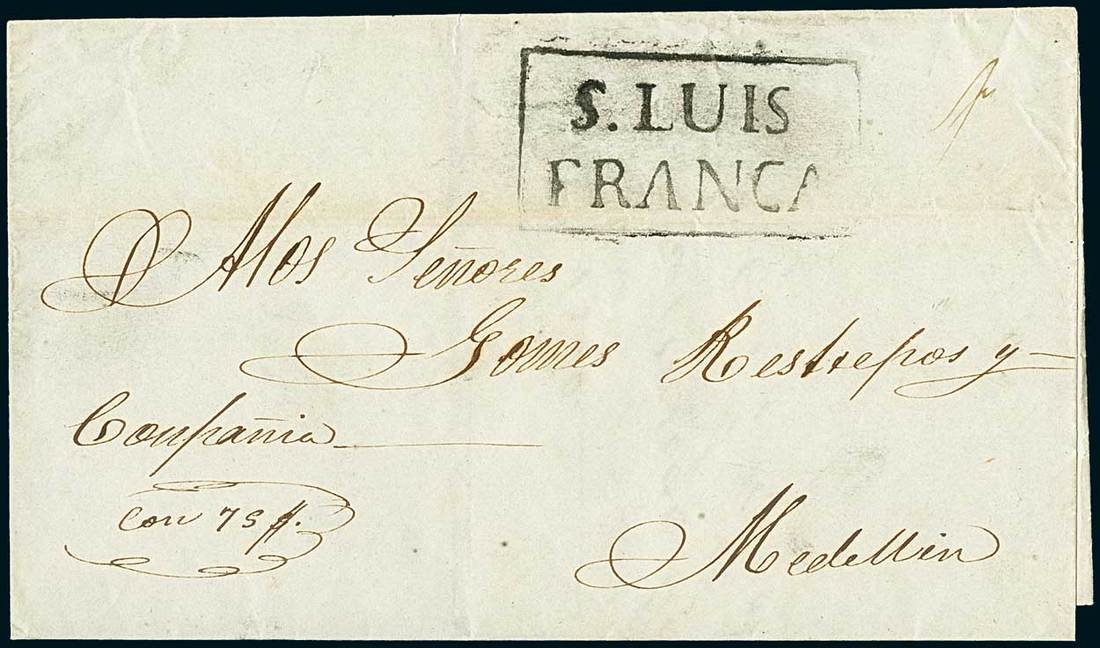 S. LUIS
FRANCA
A los Señores
Gomes Restrepos y
Compañia
con 75 p.
Medellin